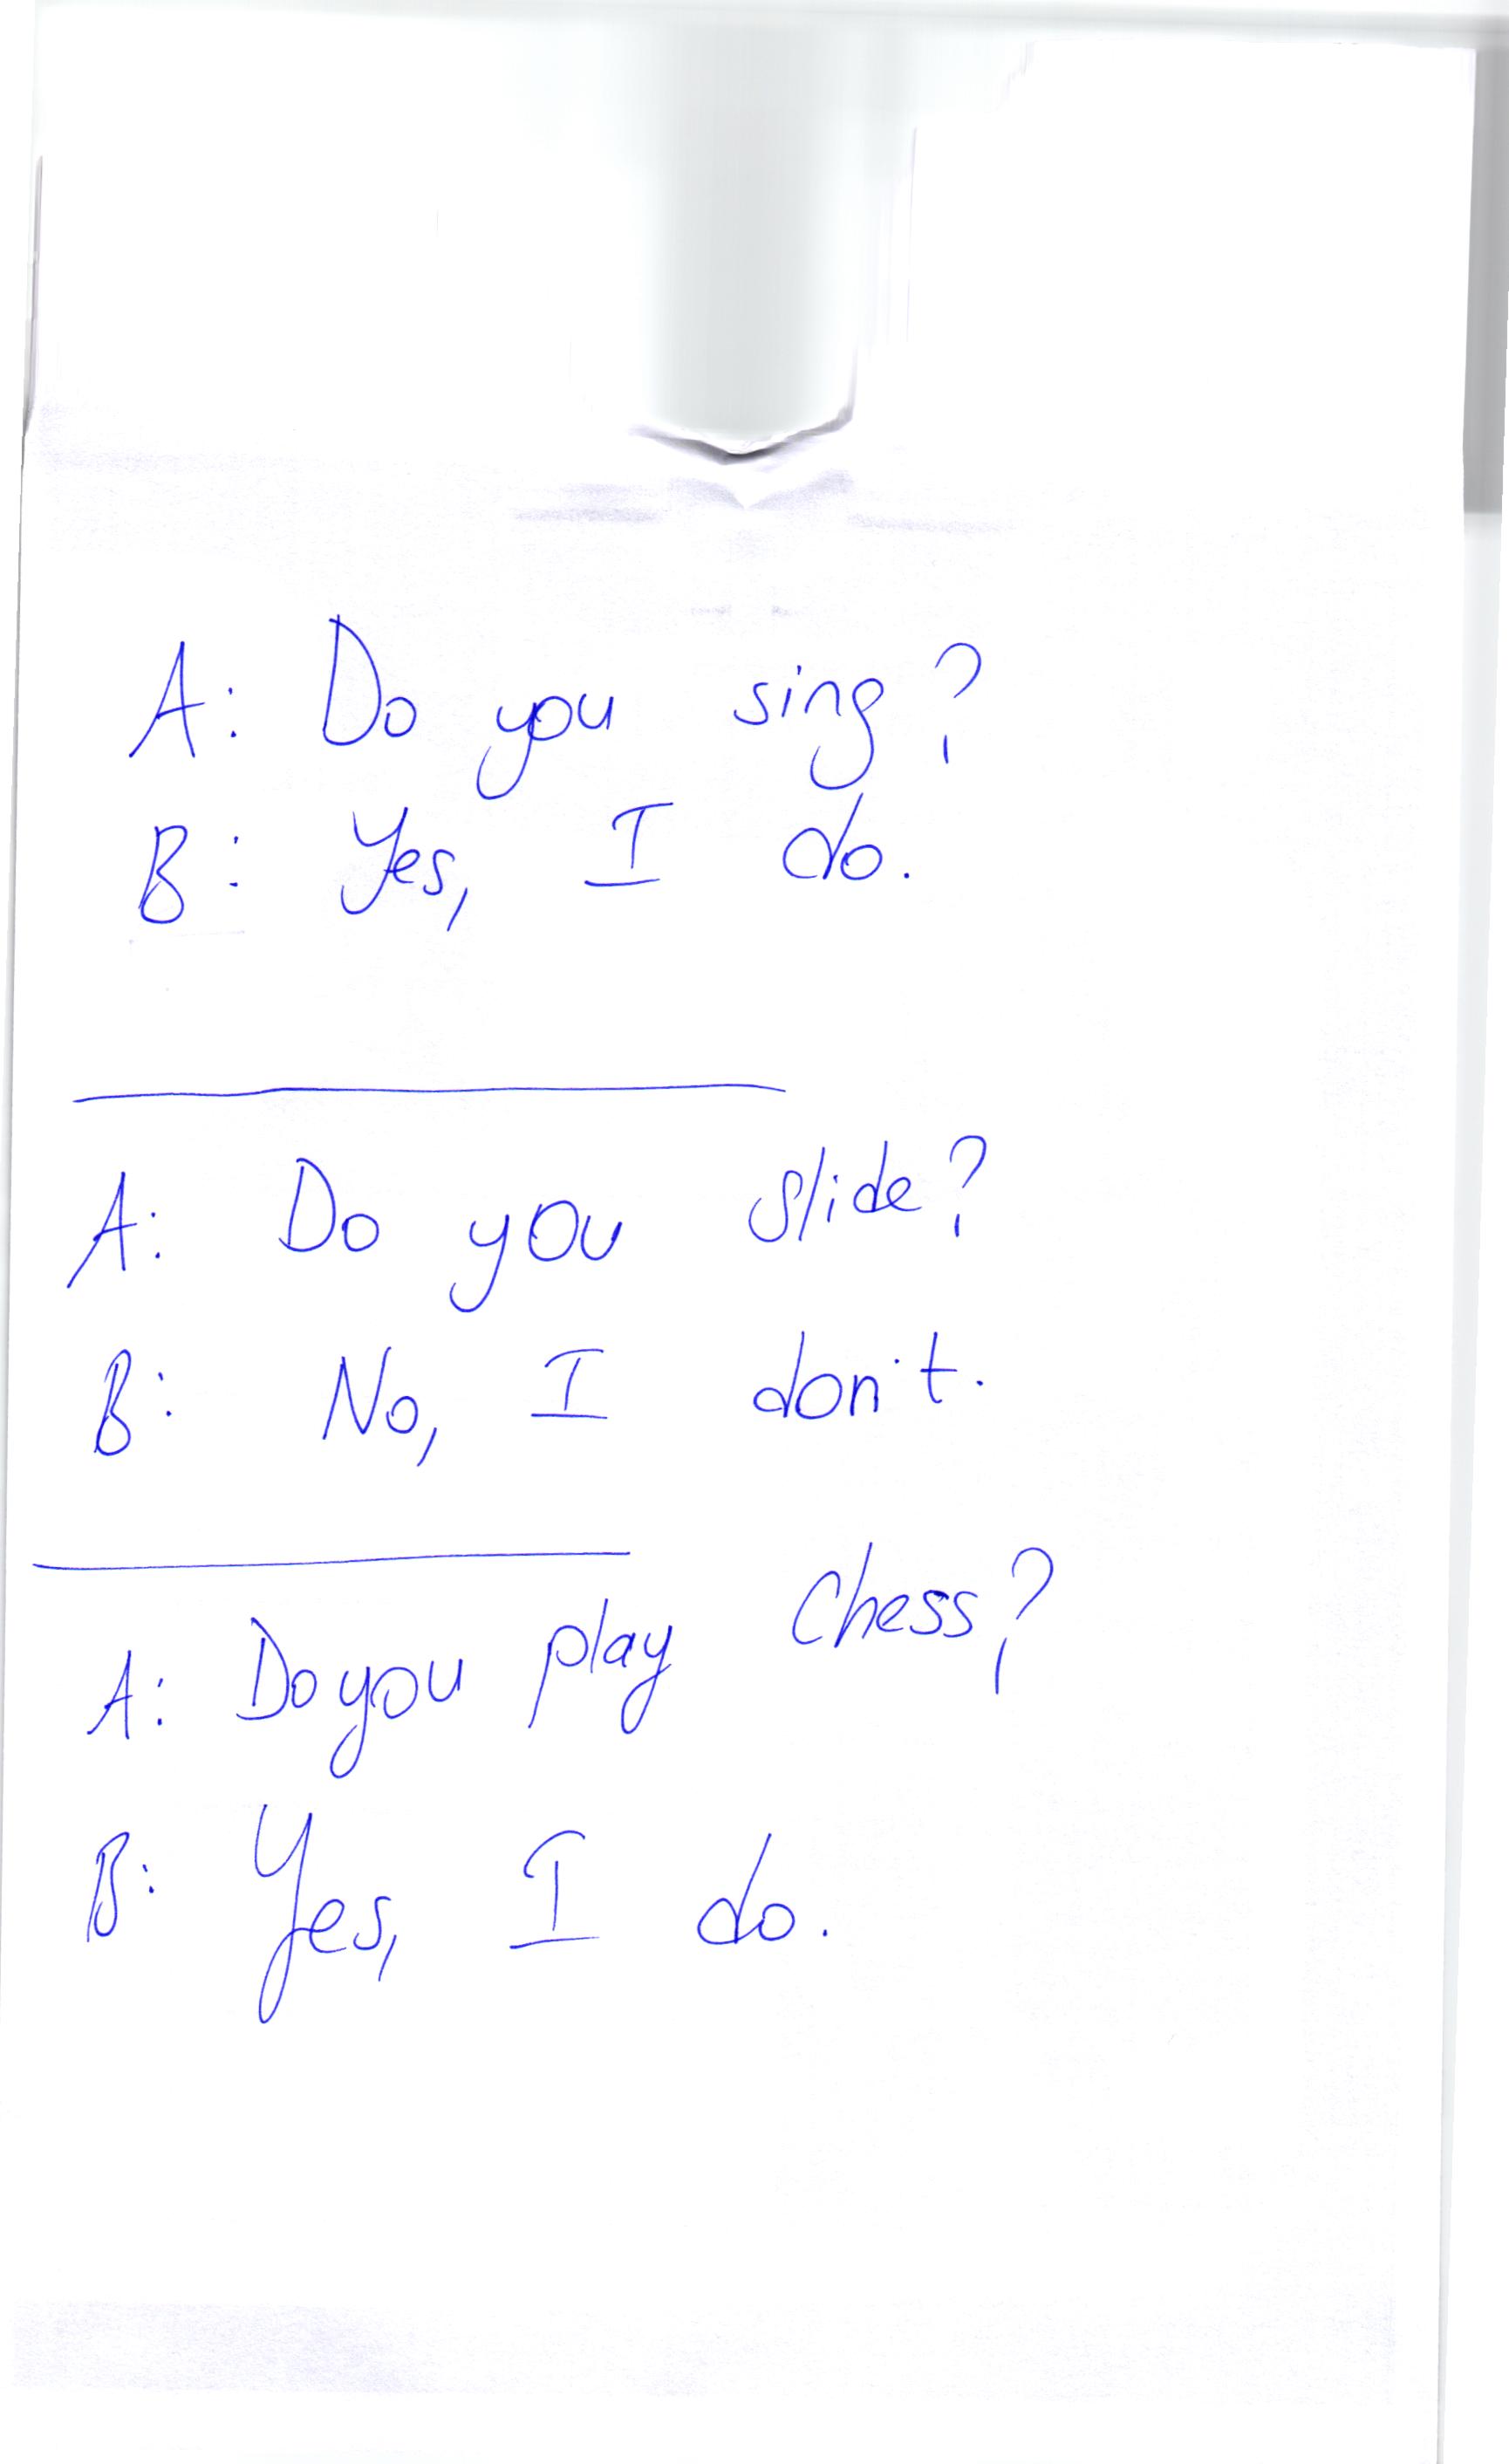 A: Do you sing?
B: Yes, I do.
A: Do you slide?
B: No, I don't.
A: Do you play chess?
B: Yes, I do.